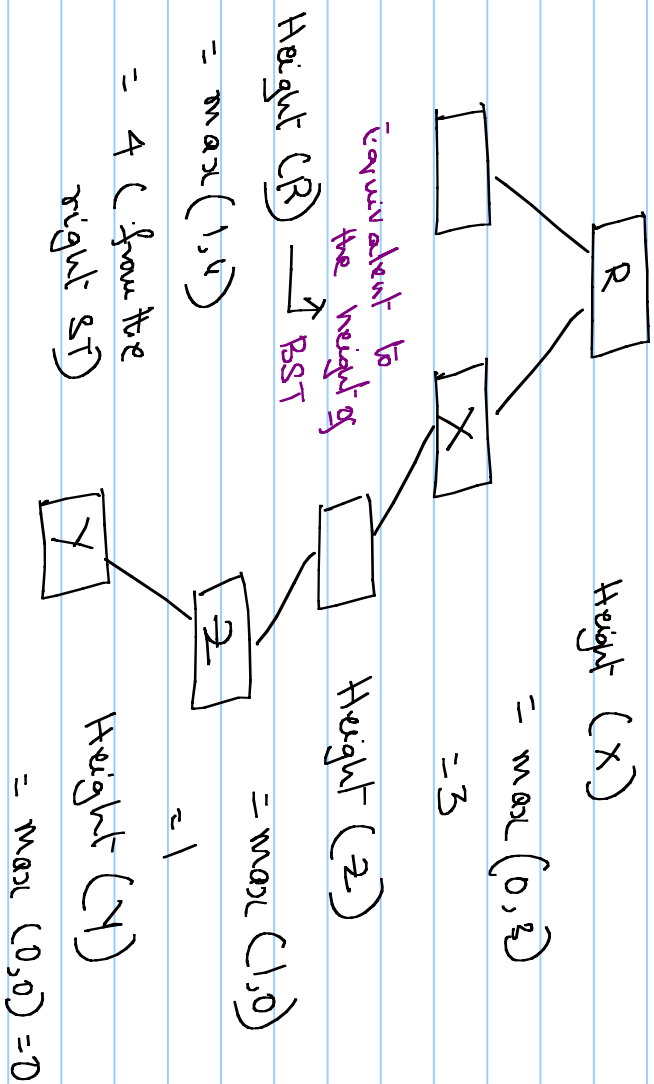 R
X
Z
Y
Height (X)
= max (0,3)
= 3
Height (Z)
= max (1,0)
= 1
Height (Y)
= max (0,0) = 0
Height (R)
equivalent to
the height of
BST
= max (1,4)
= 4 (from the
right ST)